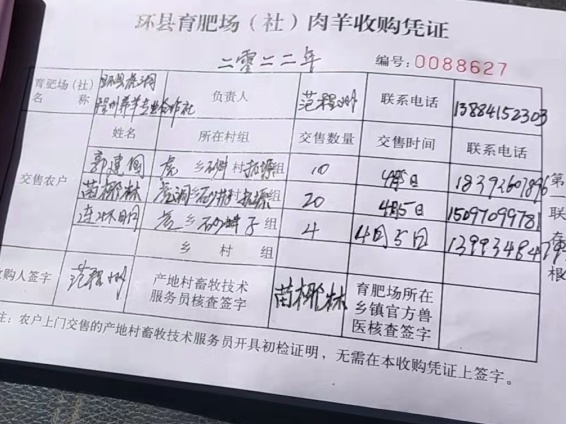 环县育肥场（社）肉羊收购凭证
二零二二年 编号：0088627
育肥场（社）名 称 环县虎洞 养羊专业合作社 负责人 范程州 联系电话 13884152303
交售农户 姓名 所在村组 交售数量 交售时间 联系电话
郭建 虎 乡 村 组 10 4月5日
苗柳林 虎洞 乡 村 组 20 4月5日 15097099781
连 虎 乡 村 组 4 4月5日
乡 村 组
收购人签字 范程州 产地村畜牧技术服务员核查签字 苗柳林 育肥场所在乡镇官方兽医核查签字
注：农户上门交售的产地村畜牧技术服务员开具初检证明，无需在本收购凭证上签字。
第
联
存
根